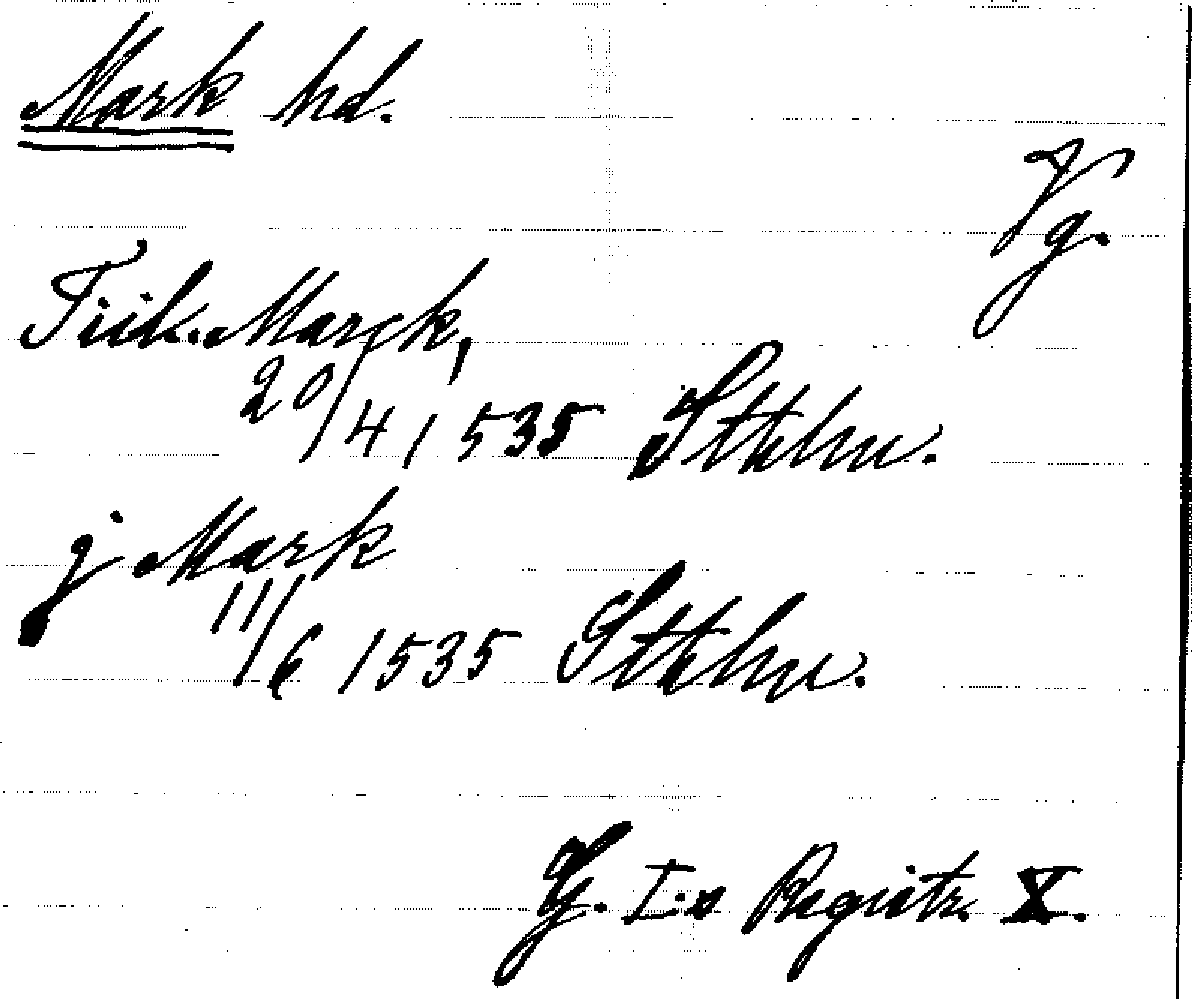 Mark hd.
Vg.
Tiik. Marck,
20/4 1535 Sthlm.
j Mark
11/6 1535 Sthlm.
G. I:s Registr. X.